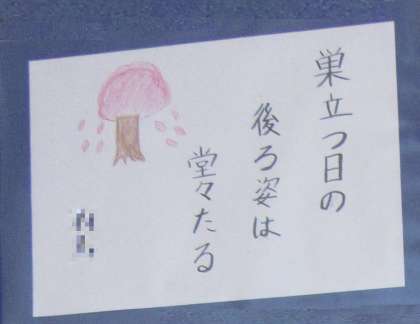 巣立つ日の
後ろ姿は
堂々たる